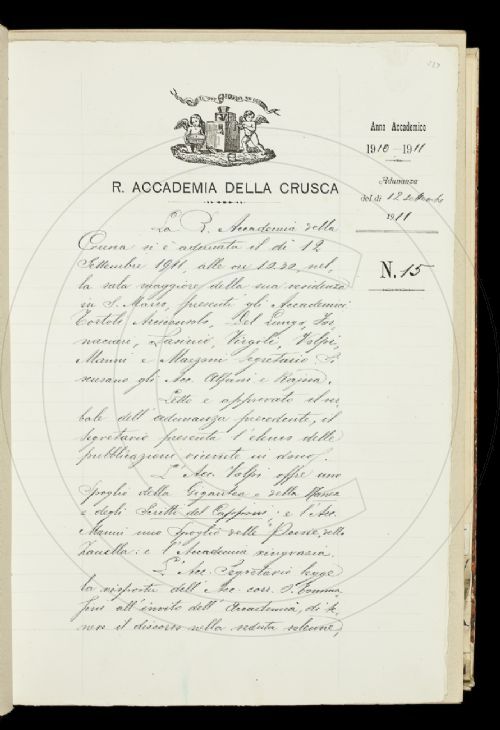 Anno Accademico
1910-1911
Adunanza
del dì 12 settembre
1911
N. 15
R. ACCADEMIA DELLA CRUSCA
La R. Accademia della
Crusca si è adunata il dì 12
Settembre 1911, alle ore 12.30, nel
la sala maggiore della sua residenza
in S. Marco, presenti gli Accademici
Tortoli Arciconsolo, Del Lungo, For
naciari, Rasinio, Vitelli, Volpi,
Manni e Mazzoni Segretario. Si
scusano gli Acc. Alfani e Rajna.
Letto e approvato il ver
bale dell'adunanza precedente, il
Segretario presenta l'elenco delle
pubblicazioni ricevute in dono.
L'Acc. Volpi offre uno
spoglio della Gigantea e della Nanea
e degli Scritti del Capponi: e l'Acc.
Manni uno spoglio delle "Poesie" dello
Zanella: e l'Accademia ringrazia.
L'Acc. Segretario legge
la risposta dell'Acc. corr. I.
all'invito dell'Accademia, di te
nere il discorso nella seduta solenne,